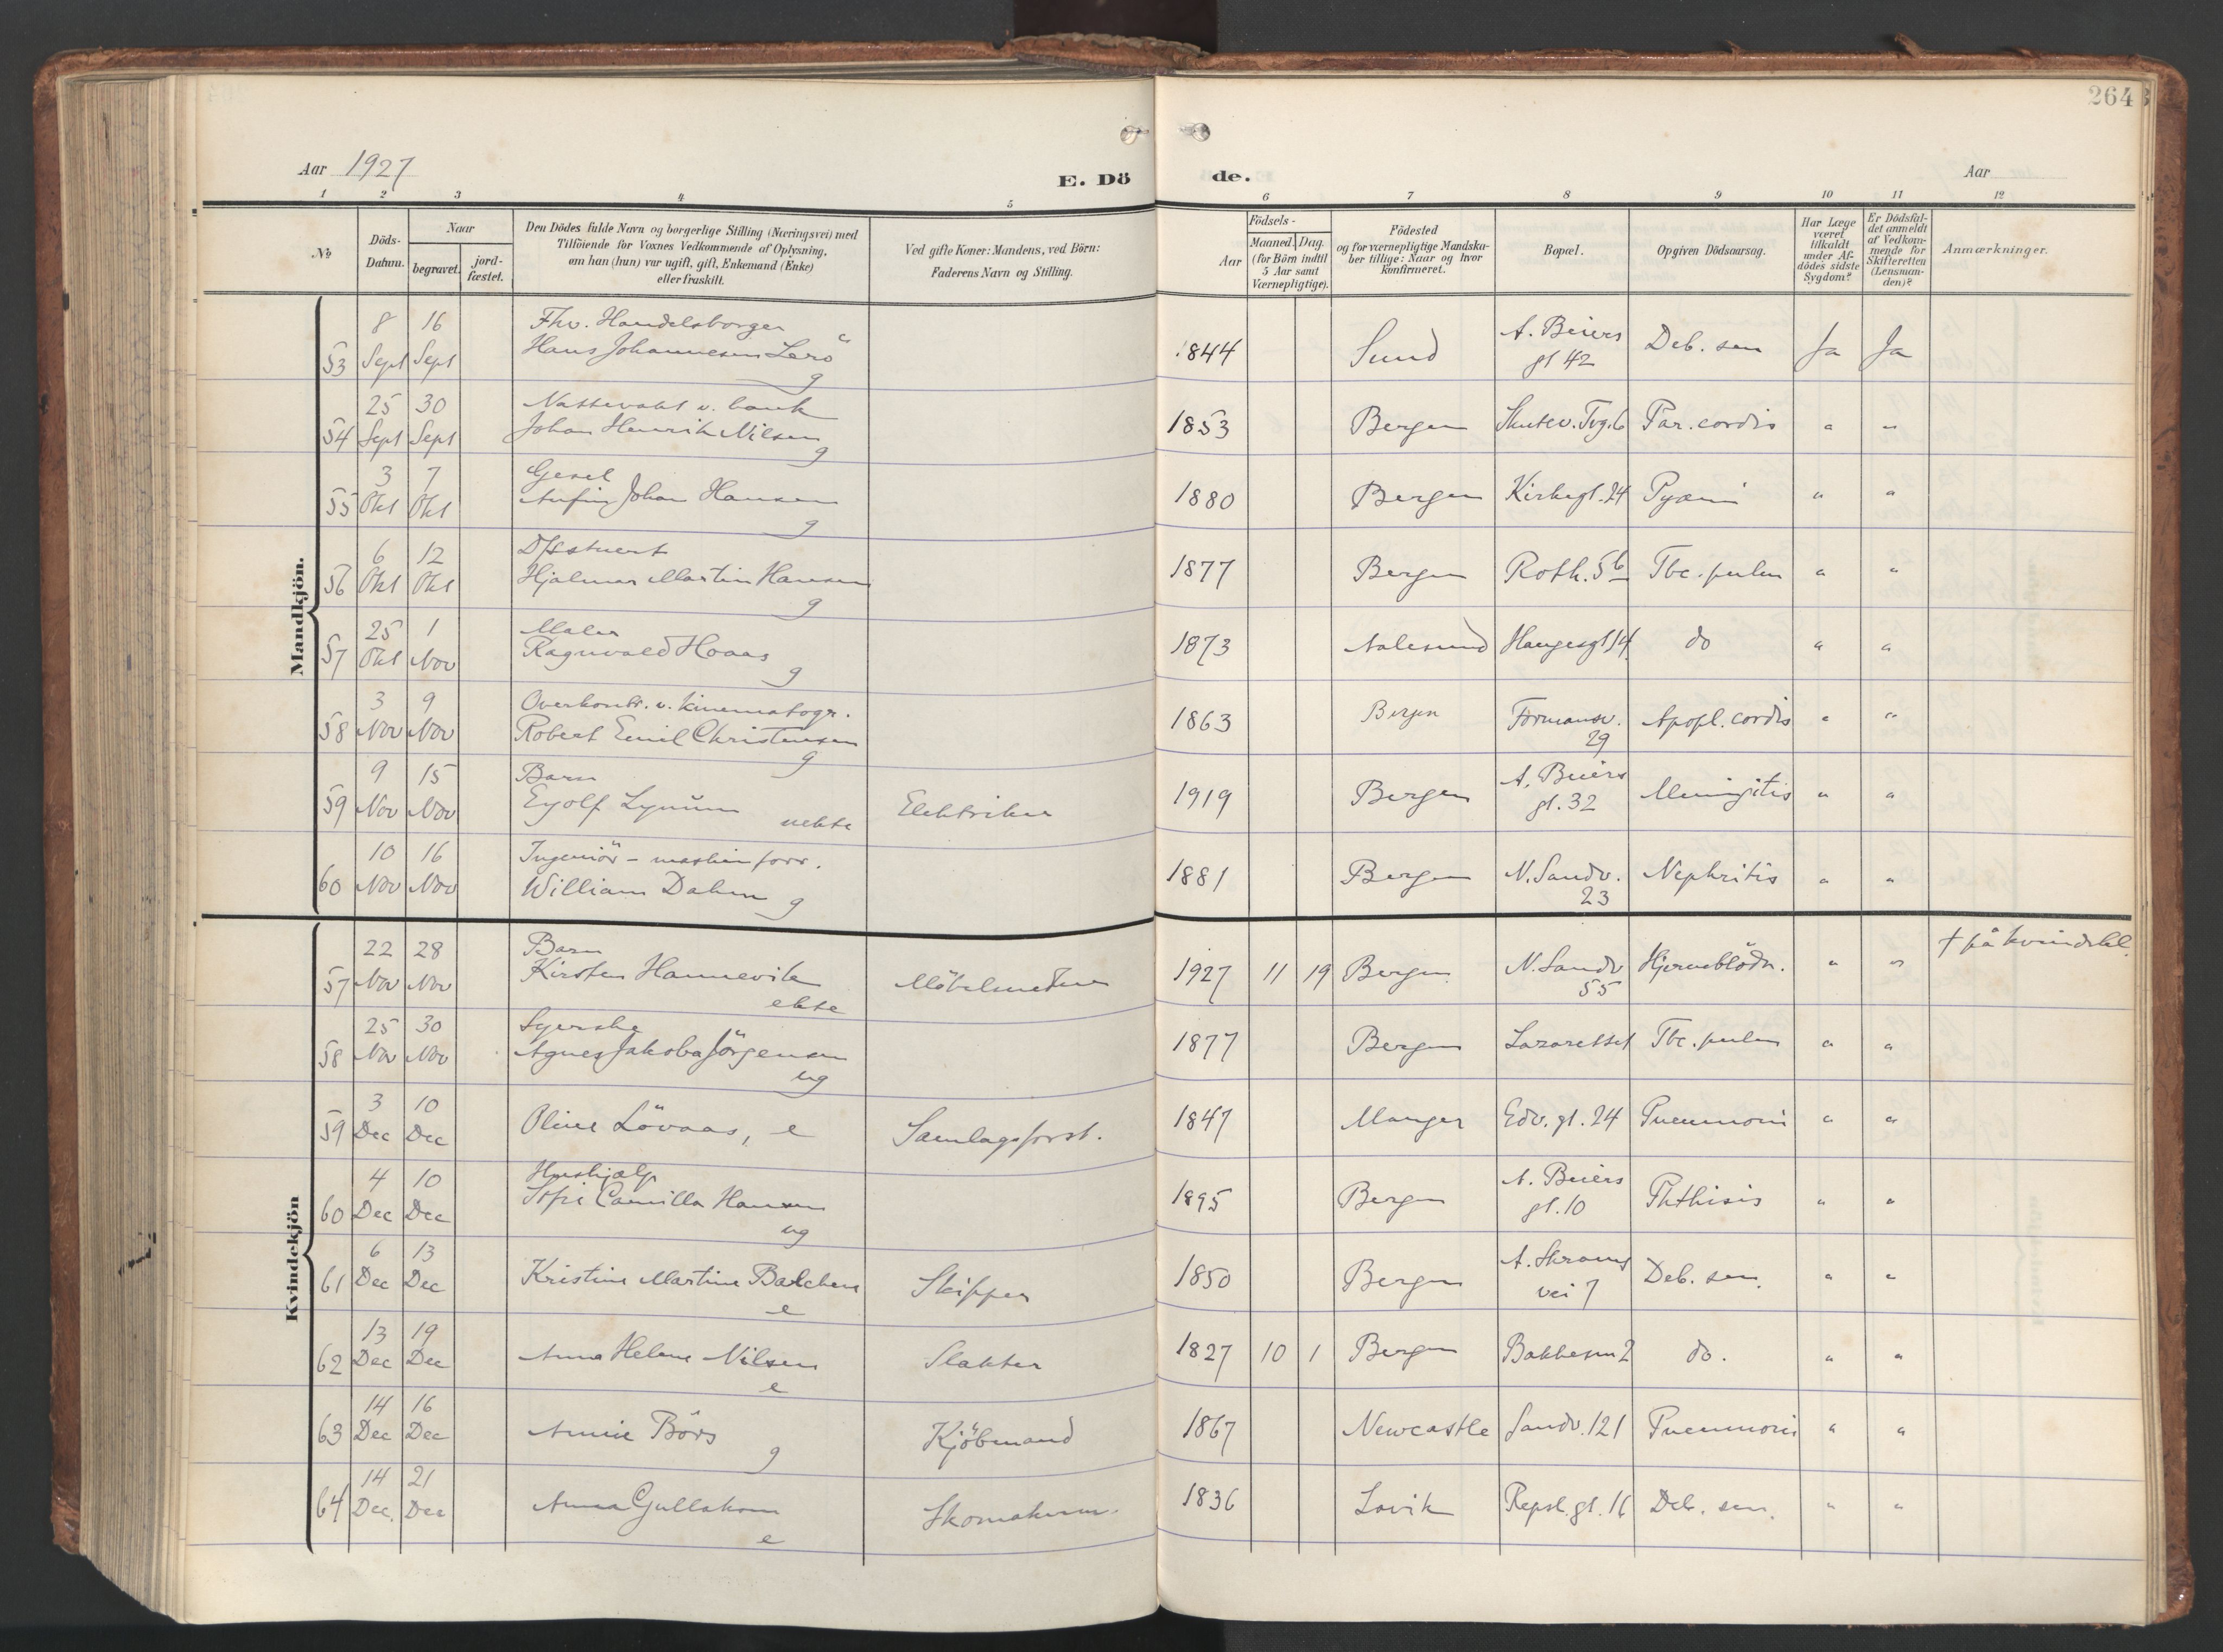 264
Aar 1927
E. Dö
de.
Aar
1 2 3 4 5 6 7 8 9 10 11 12
№
Döds-
Datum.
Naar
begravet.
jord-
fæstet.
Den Dödes fulde Navn og borgerlige Stilling (Næringsvei) med
Tilföiende for Voxnes Vedkommende af Oplysning,
om han (hun) var ugift, gift, Enkemand (Enke)
eller fraskilt.
Ved gifte Koner: Mandens, ved Börn:
Faderens Navn og Stilling.
Födsels-
Aar
Maaned. Dag.
(for Börn indtil
5 Aar samt
Værnepligtige).
Födested
og for værnepligtige Mandska-
ber tillige: Naar og hvor
konfirmeret.
Bopæl.
Opgiven Dödsaarsag.
Har Læge
været
tilkaldt
under Af-
dödes sidste
Sygdom?
Er Dödsfal-
det anmeldt
af Vedkom-
mende for
Skifteretten
(Lensman-
den)?
Anmærkninger.
Mandkjön.
53 8 Sept 16 Sept Fhv. Handelsborger
Hans Johannesen Lerö g 1844 Sund A. Beiers gt 42 Deb. sen Ja Ja
54 25 Sept 30 Sept Nattevakt v. bank
Johan Henrik Nilsen g 1853 Bergen Skutev. Tvg. 6 Par. cordis " "
55 3 Okt 7 Okt Gesel
Anfin Johan Hansen g 1880 Bergen Kirkegt. 24 Pyæmi " "
56 6 Okt 12 Okt D/s stuert
Hjalmar Martin Hansen g 1877 Bergen Roth. 5b Tbc. pulm " "
57 25 Okt 1 Nov Maler
Ragnvald Hoaas g 1873 Aalesund Haugesgt 14 do " "
58 3 Nov 9 Nov Overkontr. v. kinematogr.
Robert Emil Christensen g 1863 Bergen Formansv. 29 Apopl. cordis " "
59 9 Nov 15 Nov Barn
Eyolf Lynum uekte Elektriker 1919 Bergen A. Beiers gt. 32 Meningitis " "
60 10 Nov 16 Nov Ingeniör - maskinforr.
William Dahm g 1881 Bergen N. Sandv. 23 Nephritis " "
Kvindekjön
57 22 Nov 28 Nov Barn
Kirsten Hannevik ekte Möbelsnedker 1927 11 19 Bergen N. Sandv 55 Hjerneblödn. " " † på kvindekl.
58 25 Nov 30 Nov Syerske
Agnes Jakoba Jörgensen ug 1877 Bergen Lazarettet Tbc. pulm " "
59 3 Dec 10 Dec Oline Lövaas, e Samlagsforst. 1847 Manger Edv. gt. 24 Pneumoni " "
60 4 Dec 10 Dec Hushjælp
Sofie Camilla Hansen ug 1895 Bergen A. Beiers gt. 10 Phthisis " "
61 6 Dec 13 Dec Kristine Martine Balchen e Skipper 1850 Bergen A. Skrams vei 7 Deb. sen. " "
62 13 Dec 19 Dec Anna Helene Nilsen e Slakter 1827 10 1 Bergen Bakkesm 2 do. " "
63 14 Dec 16 Dec Annie Börs g Kjöbmand 1867 Newcastle Sandv. 121 Pneumoni " "
64 14 Dec. 21 Dec Anna Gullaksen e Skomakerm. 1836 Lavik Repsl. gt. 16 Deb. sen. " "